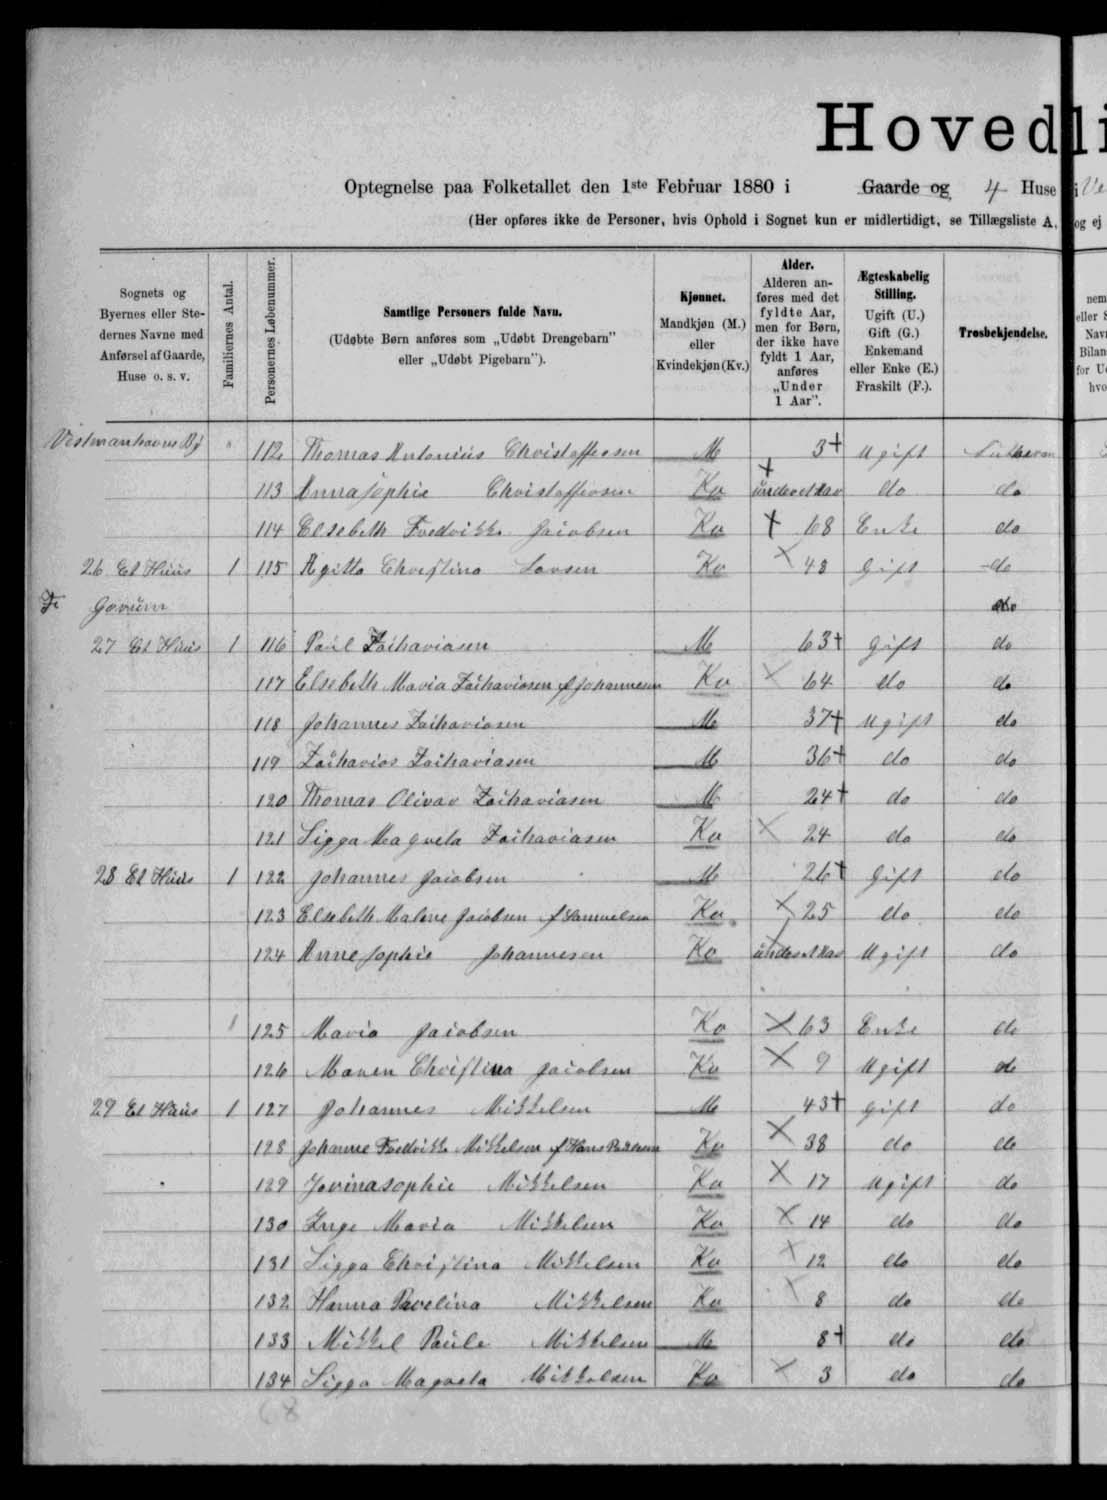 Hovedli
Optegnelse paa Folketallet den 1ste Februar 1880 i Gaarde og 4 Huse i Ve
(Her opføres ikke de Personer, hvis Ophold i Sognet kun er midlertidigt, se Tillægsliste A, og ej
Sognets og Byernes eller Stedernes Navne med Anførsel af Gaarde, Huse o. s. v.
Familiernes Antal.
Personernes Løbenummer.
Samtlige Personers fulde Navn.
(Udøbte Børn anføres som „Udøbt Drengebarn" eller „Udøbt Pigebarn").
Kjønnet.
Mandkjøn (M.) eller Kvindekjøn (Kv.)
Alder.
Alderen anføres med det fyldte Aar, men for Børn, der ikke have fyldt 1 Aar, anføres „Under 1 Aar".
Ægteskabelig Stilling.
Ugift (U.) Gift (G.) Enkemand eller Enke (E.) Fraskilt (F.).
Trosbekjendelse.
Vestmanhavns By " 112 Thomas Antonius Christoffersen M 3+ Ugift Lutheran
113 Anna Sophie Christoffersen Kv under et Aar do do
114 Elsebeth Fredrikke Jacobsen Kv + 68 Enke do
26 Et Huus 1 115 Agitta Christina Larsen Kv × 48 Gift do
Gørum do
27 Et Huus 1 116 Paul Zachariasen M 63+ Gift do
117 Elsebeth Maria Zachariasen f Johannesen Kv × 64 do do
118 Johannes Zachariasen M 37+ Ugift do
119 Zacharias Zachariasen M 36+ do do
120 Thomas Olivar Zachariasen M 24+ do do
121 Sigga Magreta Zachariasen Kv × 24 do do
28 Et Huus 1 122 Johannes Jacobsen M 26+ Gift do
123 Elsebeth Malene Jacobsen f Samuelsen Kv × 25 do do
124 Anne Sophie Johannesen Kv under et Aar Ugift do
125 Maria Jacobsen Kv × 63 Enke do
126 Maren Christina Jacobsen Kv × 9 Ugift do
29 Et Huus 1 127 Johannes Mikkelsen M 43+ Gift do
128 Johanne Fredrikke Mikkelsen f Hans Pedersen Kv × 38 do do
129 Jovina Sophie Mikkelsen Kv × 17 Ugift do
130 Inge Maria Mikkelsen Kv × 14 do do
131 Sigga Christina Mikkelsen Kv × 12 do do
132 Hanna Pavelina Mikkelsen Kv × 8 do do
133 Mikkel Paule Mikkelsen M 8+ do do
134 Sigga Magreta Mikkelsen Kv × 3 do do
68